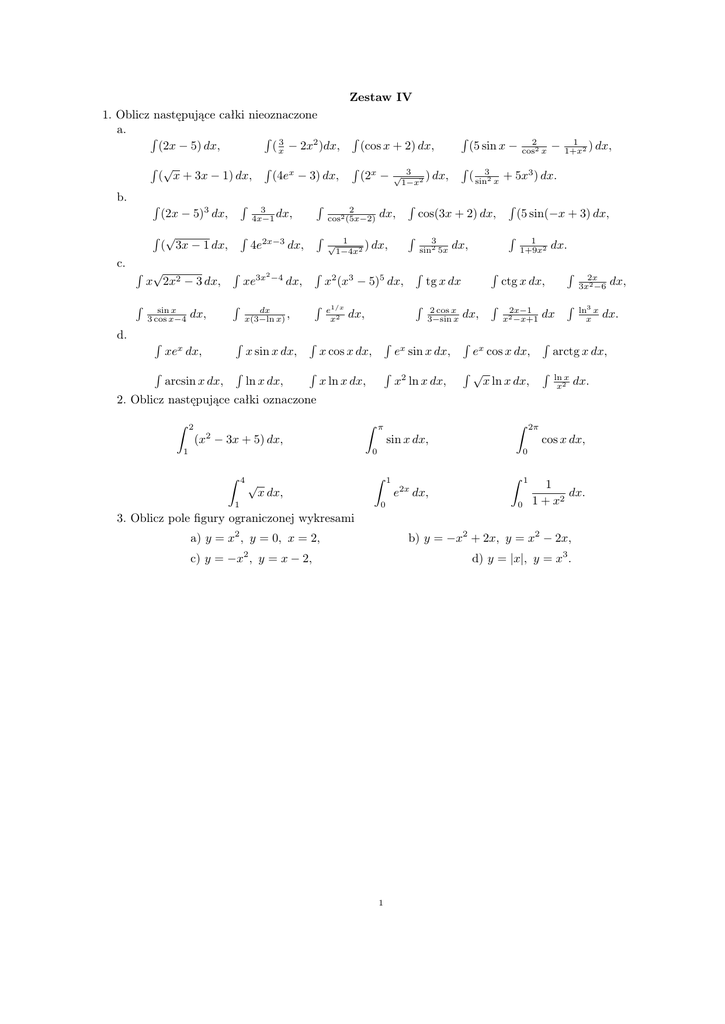 Zestaw IV
1. Oblicz następujące całki nieoznaczone
a.
∫(2x − 5) dx, ∫(3/x − 2x²)dx, ∫(cos x + 2) dx, ∫(5 sin x − 2/cos² x − 1/(1+x²)) dx,
∫(√x + 3x − 1) dx, ∫(4eˣ − 3) dx, ∫(2ˣ − 3/√(1−x²)) dx, ∫(3/sin² x + 5x³) dx.
b.
∫(2x − 5)³ dx, ∫ 3/(4x−1) dx, ∫ 2/cos²(5x−2) dx, ∫ cos(3x + 2) dx, ∫(5 sin(−x + 3) dx,
∫(√(3x − 1) dx, ∫ 4e^(2x−3) dx, ∫ 1/√(1−4x²)) dx, ∫ 3/sin² 5x dx, ∫ 1/(1+9x²) dx.
c.
∫ x√(2x² − 3) dx, ∫ xe^(3x²−4) dx, ∫ x²(x³ − 5)⁵ dx, ∫ tg x dx ∫ ctg x dx, ∫ 2x/(3x²−6) dx,
∫ sin x/(3 cos x−4) dx, ∫ dx/(x(3−ln x)), ∫ e^(1/x)/x² dx, ∫ 2 cos x/(3−sin x) dx, ∫ (2x−1)/(x²−x+1) dx ∫ ln³ x/x dx.
d.
∫ xeˣ dx, ∫ x sin x dx, ∫ x cos x dx, ∫ eˣ sin x dx, ∫ eˣ cos x dx, ∫ arctg x dx,
∫ arcsin x dx, ∫ ln x dx, ∫ x ln x dx, ∫ x² ln x dx, ∫ √x ln x dx, ∫ ln x/x² dx.
2. Oblicz następujące całki oznaczone
∫₁² (x² − 3x + 5) dx, ∫₀^π sin x dx, ∫₀^2π cos x dx,
∫₁⁴ √x dx, ∫₀¹ e^2x dx, ∫₀¹ 1/(1 + x²) dx.
3. Oblicz pole figury ograniczonej wykresami
a) y = x², y = 0, x = 2, b) y = −x² + 2x, y = x² − 2x,
c) y = −x², y = x − 2, d) y = |x|, y = x³.
1